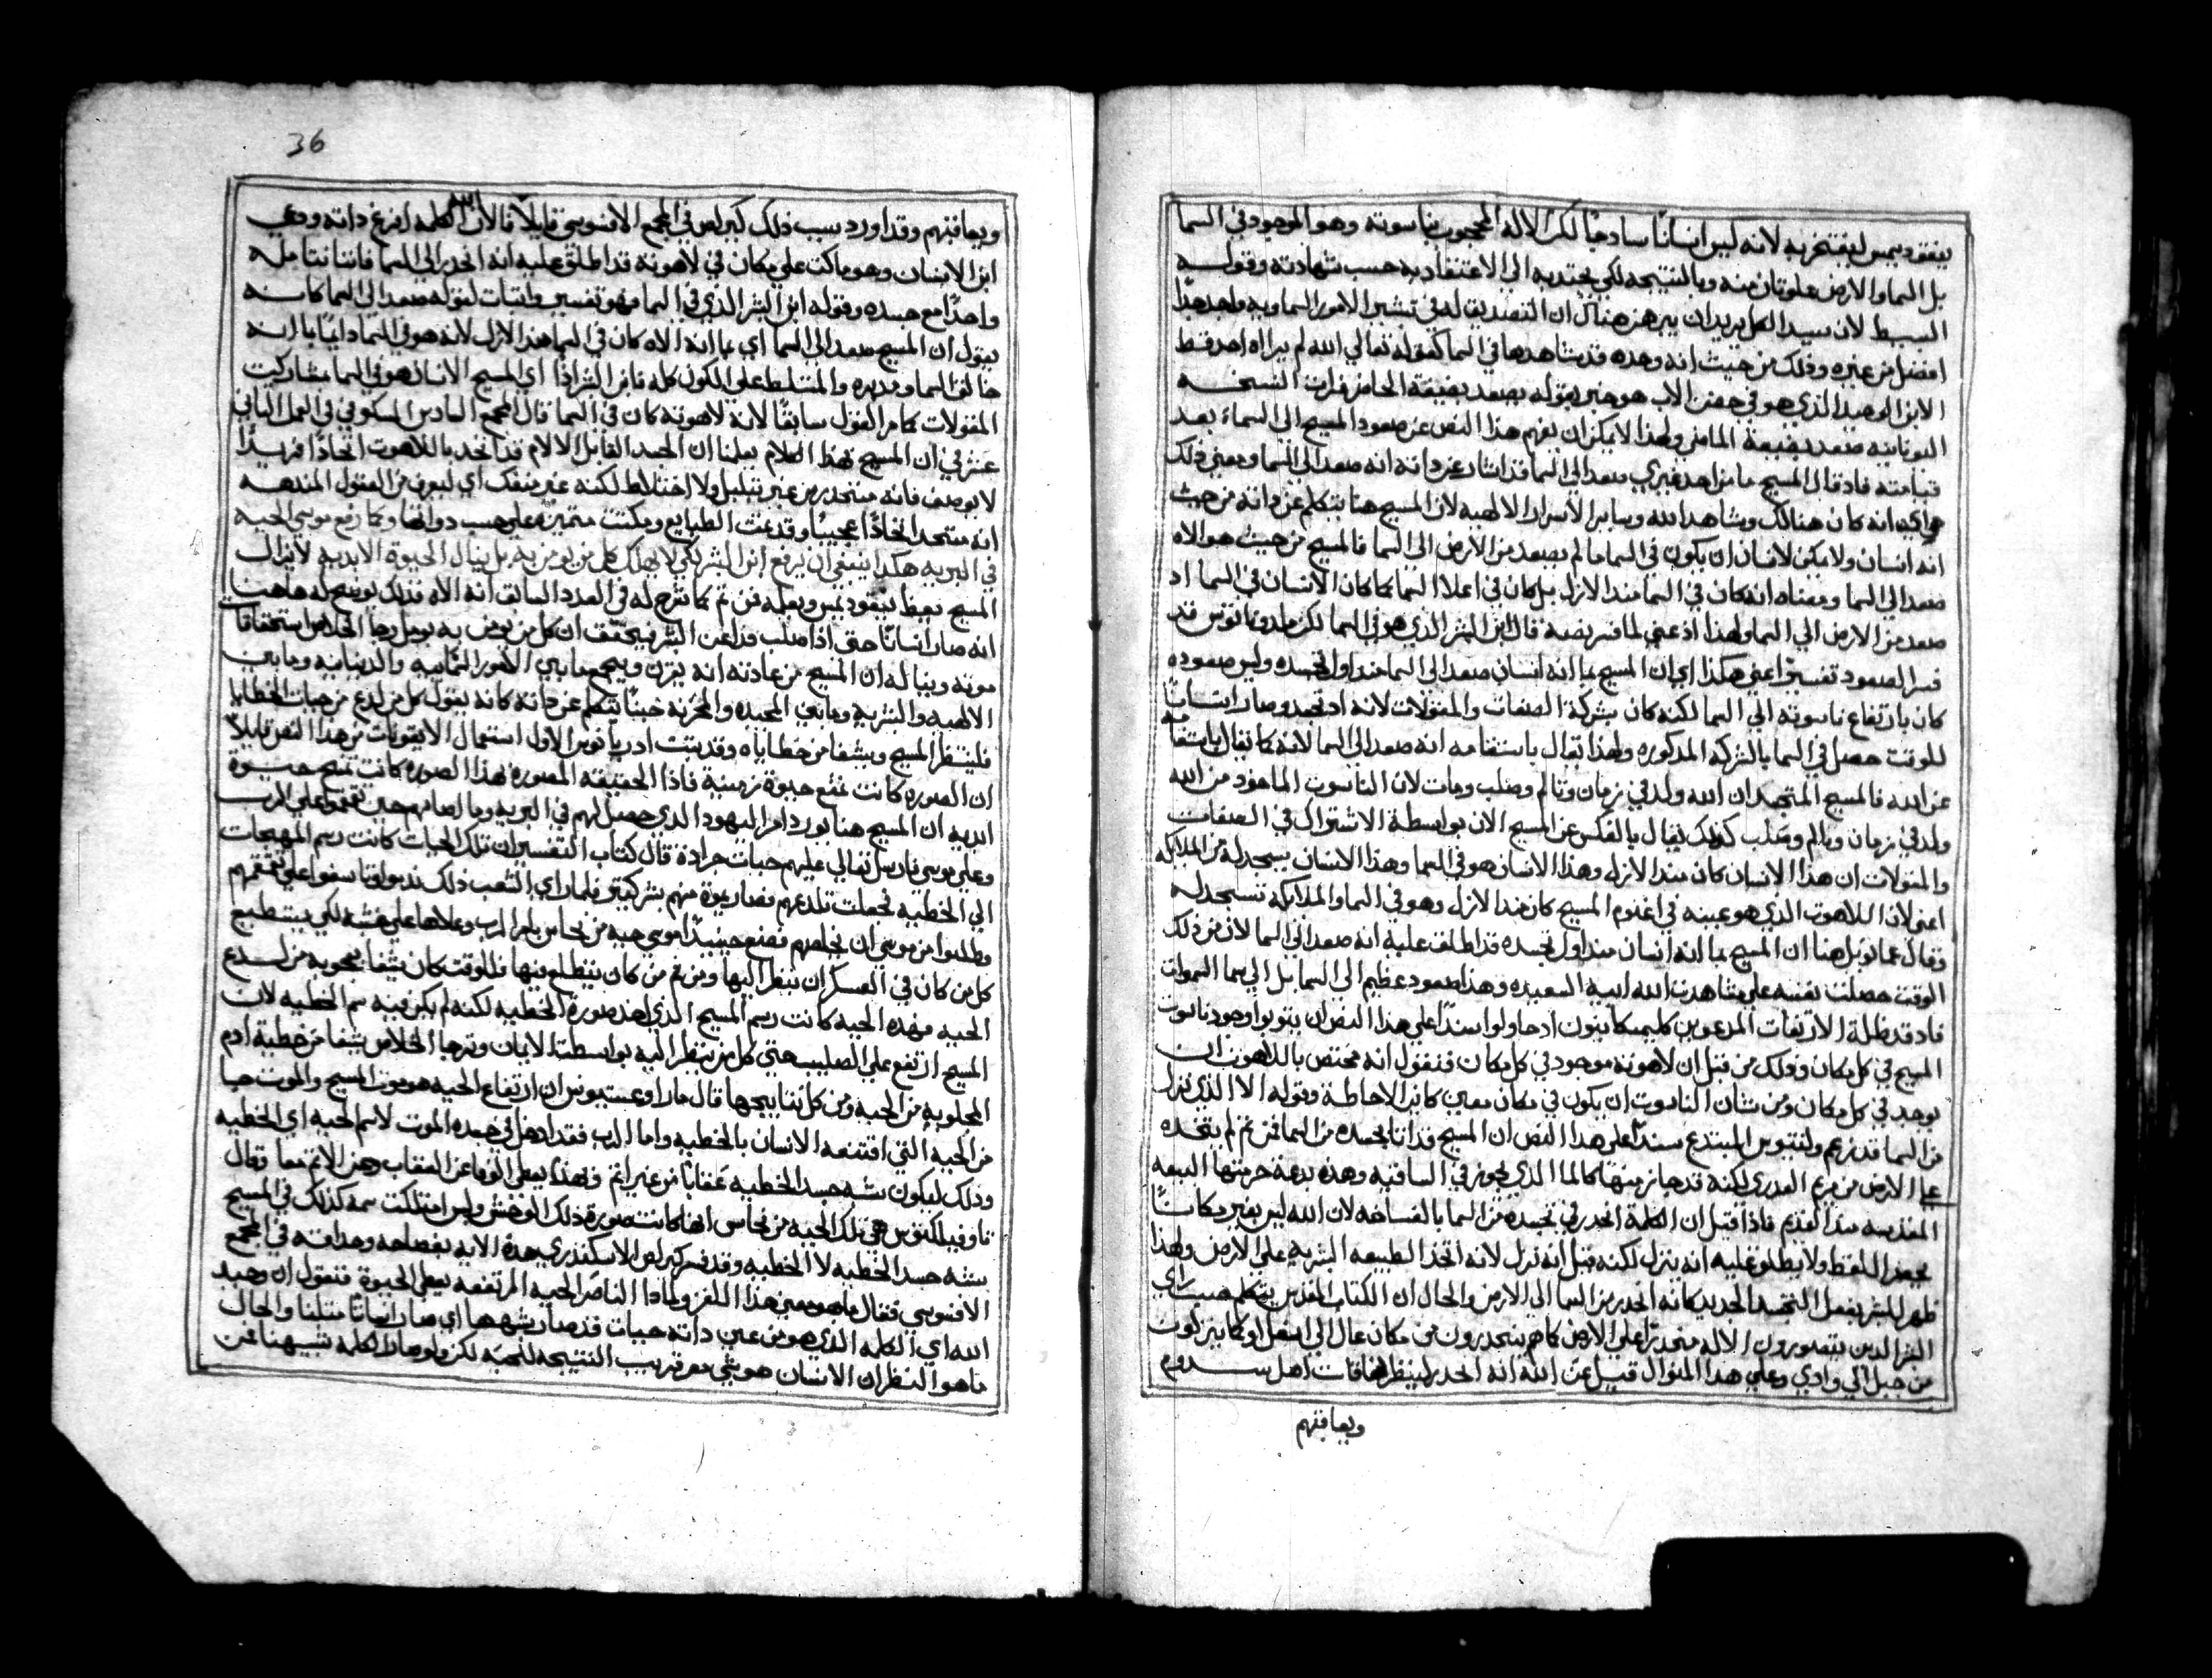 بنقوديمس ليفتخر به لانه ليس انسانًا سادجًا لكن الاله المحجوب بناسوته وهو الموجود في السما
بل السما والارض علوتان منه وبالنتيجه لكي يجتدبه الي الاعتقاد به حسب شهادته وقوله
البسيط لان سيد الكل يريد ان يبرهن هناك ان التصديق له في تشير الامور السماويه واجب جدًا
افضل من غيره وذلك من حيث انه وحده قد شاهدها في السما كقوله تعالي الله لم يراه احد قط
الابن الوحيد الذي هو في حضن الاب هو خبر بقوله يصعد بصيغة الحاضر في ان النسخه
اليونانيه صعد بصيغة الماضي ولهذا لا يمكن ان يفهم هذا النص عن صعود المسيح الي السماء بعد
قيامته فاد قال المسيح ما من احد غيري صعد الي السما قد اشار عن داته انه صعد الي السما ومعني ذلك
هو اي انه كان هنالك وشاهد الله وساير الاسرار الالهيه لان المسيح هنا يتكلم عن داته من حيث
انه انسان ولا يمكن لانسان ان يكون في السما ما لم يصعد من الارض الي السما فالمسيح من حيث هو الاه
صعد الي السما ومعناه انه كان في السما مند الازل بل كان في اعلا السما كما كان الانسان في السما اد
صعد من الارض الي السما ولهذا اذ عني لما فسر بصة قال ابن البشر الذي هو في السما لكن ملدوناتوس قد
فسر الصعود تفسيرًا اعني هكذا اي ان المسيح بما انه انسان صعد الي السما مند اول تجسده وليس صعوده
كان بارتفاع ناسوته الي السما لكنه كان بشركة الصفات والمقولات لانه اد تجسد وصار انسانًا
للوقت حصل في السما بالشركه المدكوره ولهذا يقال باستقامه انه صعد الي السما لانه كما يقال باستقامه
عن الله فالمسيح المتجسد ان الله ولد في زمان وتالم وصلب ومات لان الناسوت الماخود من الله
ولد في زمان وتالم وصلب كذلك يقال بالعكس عن المسيح الان بواسطة الاشتراك في الصفات
والمقولات ان هذا الانسان كان مند الازل وهذا الانسان هو في السما وهذا الانسان يسجد له من الملايكه
اعني لان اللاهوت الذي هو عينه في اقنوم المسيح كان مند الازل وهو في السما والملايكة تسجد له
وقال عمانويل هنا ان المسيح بما انه انسان مند اول تجسده قد اطلق عليه انه صعد الي السما لان من ذلك
الوقت حصلت نفسه علي مشاهدت الله ابيه السعيده وهذا صعود عظيم الي السما بل الي سما السموات
فاد قد بطلة الارتفات المدعوين كليميكاينون ادحاولوا سندًا علي هذا النص ان يتوبوا وجود ناسوت
المسيح في كل مكان وذلك من قبل ان لاهوته موجود في كل مكان فنقول انه مختص باللاهوت ان
يوجد في كل مكان ومن شان الناسوت ان يكون في مكان معين كاين الاحاطة وقوله الا الذي نزل
من السما قد زعم ولنتيوس المبتدع سندًا علي هذا النص ان المسيح قد اتا بجسده من السما فمن ثم لم يتخده
علي الارض من مريم العدري لكنه قد جاز منها كالما الذي يجوز في الساقيه وهذه بدعة حرمتها البيعه
المقدسه مند القديم فاذا قيل ان الكلمة انحدر في تجسده من السما بالفساحه لان الله ليس يغير مكانًا
بحصر اللقط ولا يطلق عليه انه ينزل لكنه قيل انه نزل لانه اتخذ الطبيعه البشريه علي الارض ولهذا
ظهر للبشر بفعل التجسد الجديد كانه انحدر من السما الي الارض والحال ان الكتاب المقدس يتكلم حسب راي
البشر الدين يتصورون الاله منحدرًا علي الارض كما هم ينحدرون من مكان عال الي اسفل او كما ينزلون
من جبل الي وادي وعلي هدا المنوال قيل عن الله انه انحدر لينظر نفاقات اهل سدوم
ويعاقبهم
36
ويعاقبهم وقد اورد سبب ذلك كيرلص في المجمع الافسوسي قايلًا قال لان الله الكلمه افرغ داته ودعي
ابن الانسان وهو ماكت علي مكان في لاهوته قد اطلق عليه انه انحدر الي السما فاننا نتامله
واحدًا مع جسده وقوله ابن البشر الذي في السما فهو تفسير واتبات لقوله صعد الي السما كانه
يقول ان المسيح صعد الي السما اي بما انه الاه كان في السما مند الازل لانه هو في السما دايمًا بما انه
خالق السما ومدبره والمتسلط علي الكون كله فابن البشر اذًا اي المسيح الانسان هو في السما بمشاركت
المقولات كما مر القول سابقًا لانه لاهوته كان في السما قال المجمع السادس المسكوني في العمل التاني
عشر في ان المسيح بهذا الكلام يعلمنا ان الجسد القابل الالام قد اتحد باللاهوت اتحادًا فريدًا
لا يوصف فانه متحد من غير تبلبل ولا اختلاط لكنه غير منفك اي ليعرف من العقول المندهه
انه متحد اتحادًا عجيبًا وقد عنت الطبايع ومكتت متميزه علي حسب دواتها وكما رفع موسي الحيه
في البريه هكدا ينبغي ان يرفع ابن البشر لكي لا يهلك كل من يومن به بل ينال الحيوة الابديه لايزال
المسيح يعظ نيقوديمس ويعلمه فمن ثم كما شرح له في العدد السالف انه الاه فذلك يوضح له هاهنا
انه صار انسانًا حتي اذا صلب فدا عن البشر فيحقق ان كل من يومن به يومل رجا الخلاص استحقاقًا
موته وينا له ان المسيح من عادته انه يقرن ويجمع ما بين الامور السماييه والدنيانيه وما بين
الالهيه والبشريه وما بين المجيده والمحزنه حينًا يتكلم عن داته كانه يقول كل من لدع من حيات الخطايا
فلينظر المسيح ويشفا من خطاياه وقد يتبت ادريانوس الاول استعمال الايقونات من هدا النص قايلًا
ان الصوره كانت تمنع حيوة زمنية فاذا الحقيقه المصوره لهذا الصوره كانت تمنح حيوة
ابديه ان المسيح هنا يورد امر اليهود الدي حصل لهم في البريه وما اصابهم حين تقمقموا علي الرب
وعلي موسي فارسل تعالي عليهم حيات حراده قال كتاب التفسير ان تلك الحيات كانت رسم المهيجات
الي الخطيه فجعلت تلدعهم فصار يموة منهم بشر كتير فلما راي الشعب ذلك ندموا وتاسفوا علي تقمقمهم
وطلبوا من موسي ان يخلصهم فصنع حينيدًا موسي حيه من نحاس بامر الرب وعلاها علي خشبه لكي يستطيع
كل من كان في العسكر ان ينظر اليها ومن ثم من كان يتطلع فيها فللوقت كان يشفا بعجوبه من لدع
الحيه فهذه الحيه كانت رسم المسيح الذي اخذ صورة الخطيه لكنه لم يكن فيه سم الخطيه لان
المسيح ارتفع علي الصليب حتي كل من ينظر اليه بواسطة الايمان وترجا الخلاص يشفا من خطية ادم
المجلوبه من الحيه ومن كل نتايجها قال مار اوغستينوس ان ارتفاع الحيه هو موت المسيح والموت جا
من الحيه التي اقتنعه الانسان بالخطيه واما الرب فقد ادخل في جسده الموت لاسم الحيه اي الخطيه
وذلك ليكون بشبه جسد الخطيه عقابًا من غير اتم ولهذا يعطي الوفا عن العقاب وعن الاتم معا وقال
تاوفيلكتوس هي تلك الحيه من نحاس انها كانت صورة ذلك الوخش وليس امتلكت سمه كذلك في المسيح
بشبه جسد الخطيه لا الخطيه وقد فسر كيرلص الاسكندري هدة الايه بفصاحه وحداقه في المجمع
الافسوسي فقال ما هو معني هذا اللغز ولماذا الناصر الحيه المرتفعه يعطي الحيوة فنقول ان وحيد
الله اي الكلمه الذي هو من عين داته حيات قد صار بشبهها اي صار انسانًا متلنا والحال
ما هو النظر ان الانسان هو شي معر تريب النتيجه للحيه لكن ولو صار الكلمه شبيهنا فمن